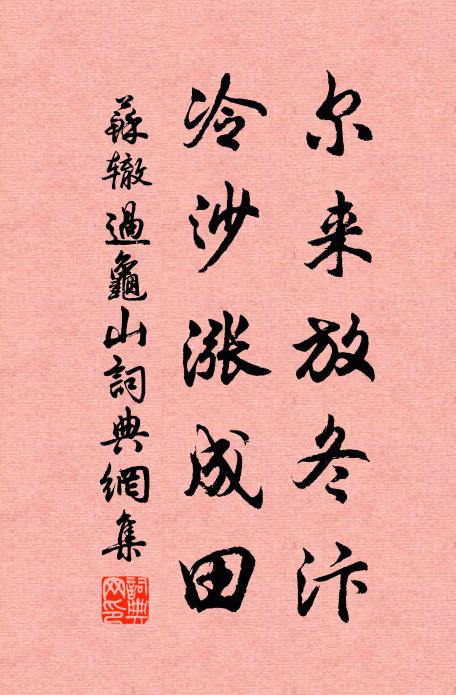 尔来放冬汴
冷沙涨成田
蘇辙過龜山詞典網集
詞典網印